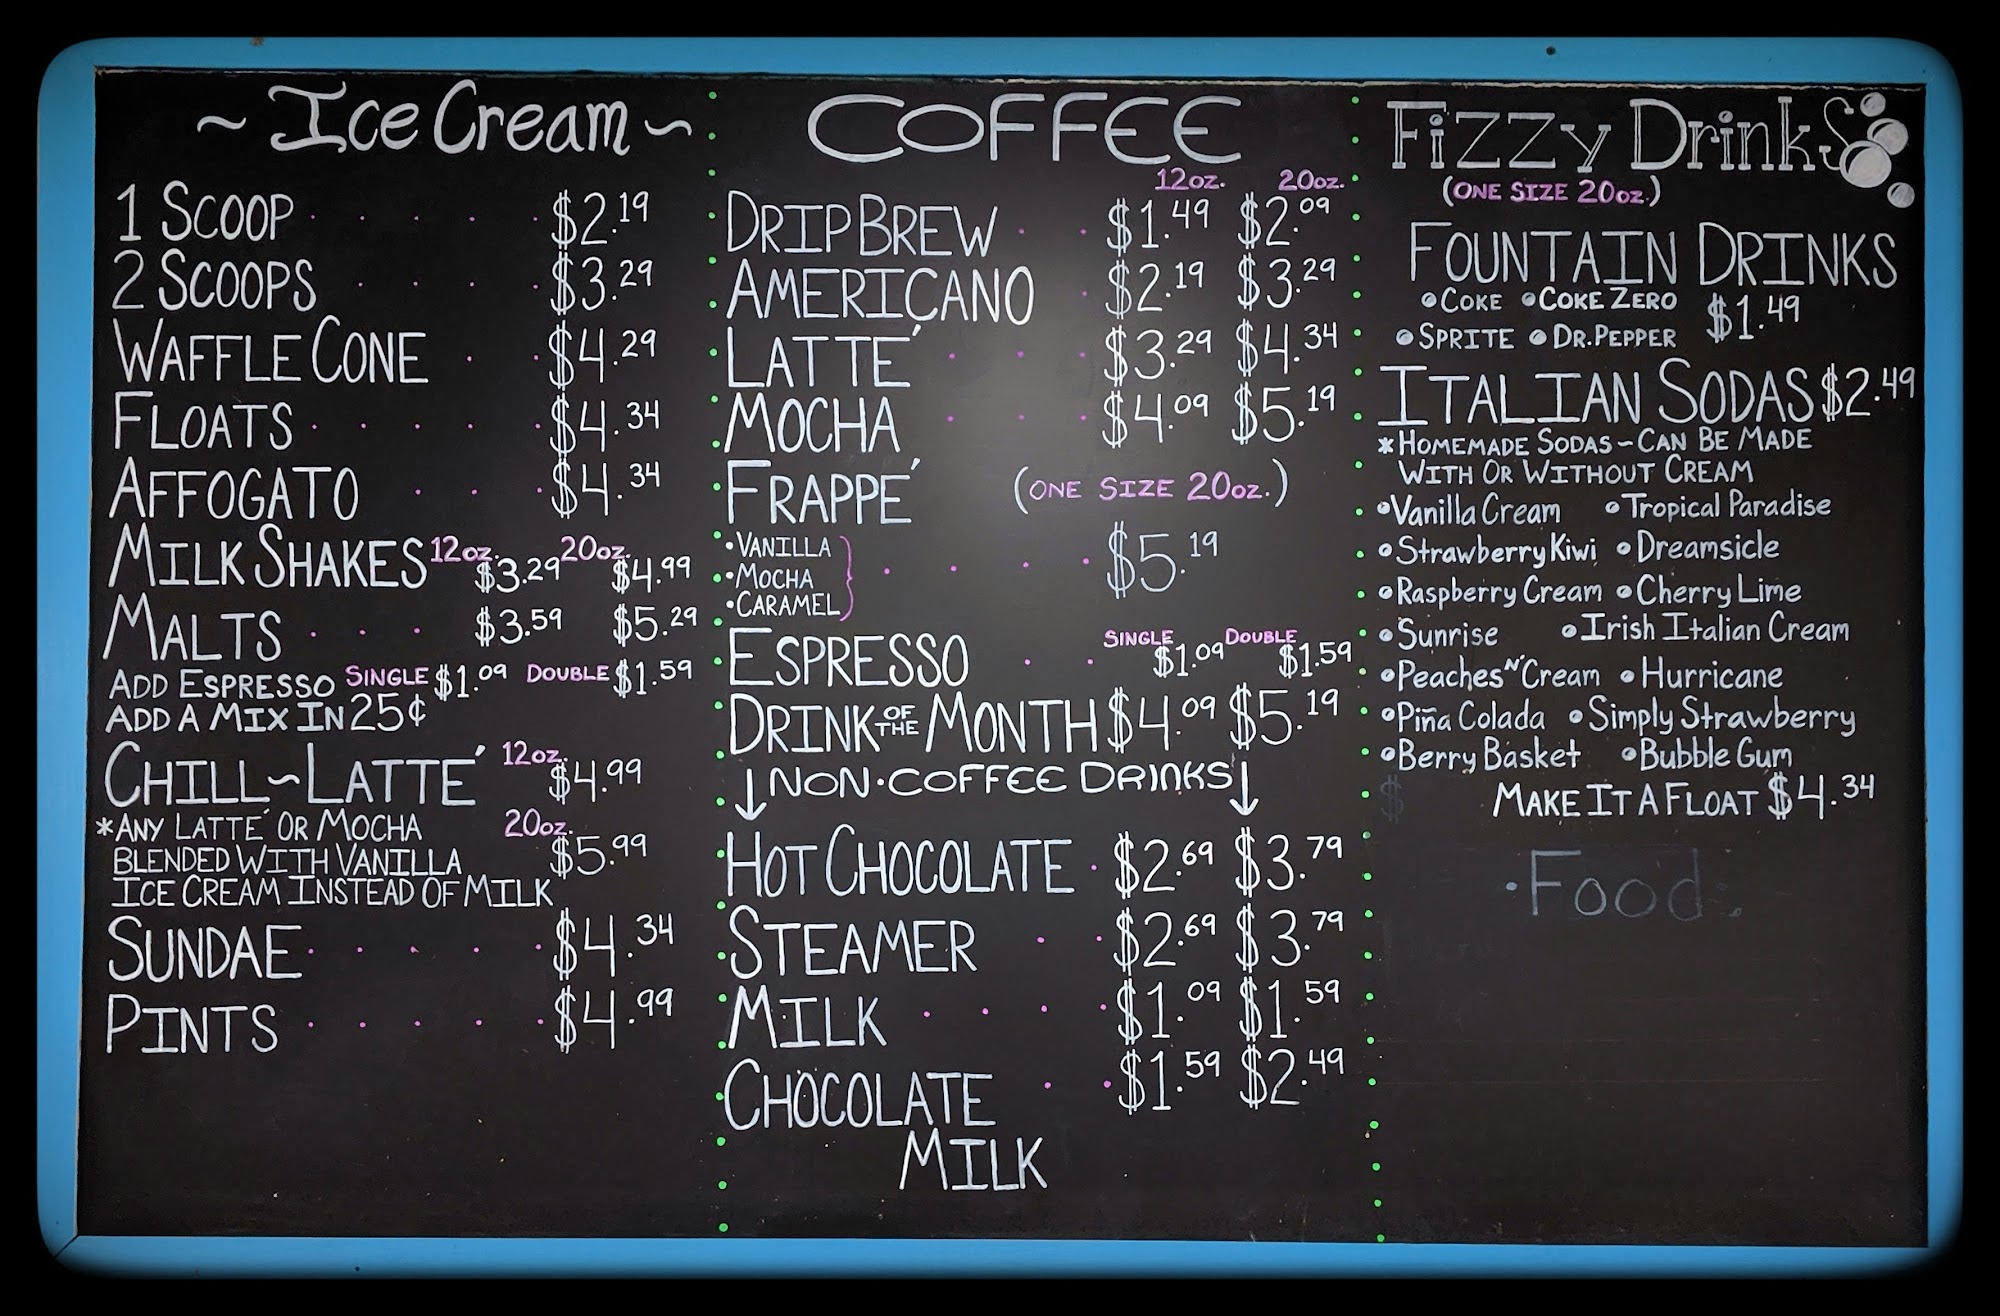 ~ Ice Cream ~
1 SCOOP $2.19
2 SCOOPS $3.29
WAFFLE CONE $4.29
FLOATS $4.34
AFFOGATO $4.34
MILK SHAKES 12oz. $3.29 20oz. $4.99
MALTS $3.59 $5.29
ADD ESPRESSO SINGLE $1.09 DOUBLE $1.59
ADD A MIX IN 25¢
CHILL~LATTE´ 12oz. $4.99
*ANY LATTE´ OR MOCHA 20oz. $5.99
BLENDED WITH VANILLA
ICE CREAM INSTEAD OF MILK
SUNDAE $4.34
PINTS $4.99
COFFEE
12oz. 20oz.
DRIP BREW $1.49 $2.09
AMERICANO $2.19 $3.29
LATTE´ $3.29 $4.34
MOCHA $4.09 $5.19
FRAPPE´ (ONE SIZE 20oz.)
•VANILLA
•MOCHA $5.19
•CARAMEL
ESPRESSO SINGLE $1.09 DOUBLE $1.59
DRINK OF THE MONTH $4.09 $5.19
↓NON•COFFEE DRINKS↓
HOT CHOCOLATE $2.69 $3.79
STEAMER $2.69 $3.79
MILK $1.09 $1.59
CHOCOLATE $1.59 $2.49
MILK
Fizzy Drinks
(ONE SIZE 20oz.)
FOUNTAIN DRINKS
•COKE •COKE ZERO $1.49
•SPRITE •DR.PEPPER
ITALIAN SODAS $2.49
*HOMEMADE SODAS~CAN BE MADE
WITH OR WITHOUT CREAM
•Vanilla Cream •Tropical Paradise
•Strawberry Kiwi •Dreamsicle
•Raspberry Cream •Cherry Lime
•Sunrise •Irish Italian Cream
•Peaches N' Cream •Hurricane
•Piña Colada •Simply Strawberry
•Berry Basket •Bubble Gum
$ MAKE IT A FLOAT $4.34
•Food: